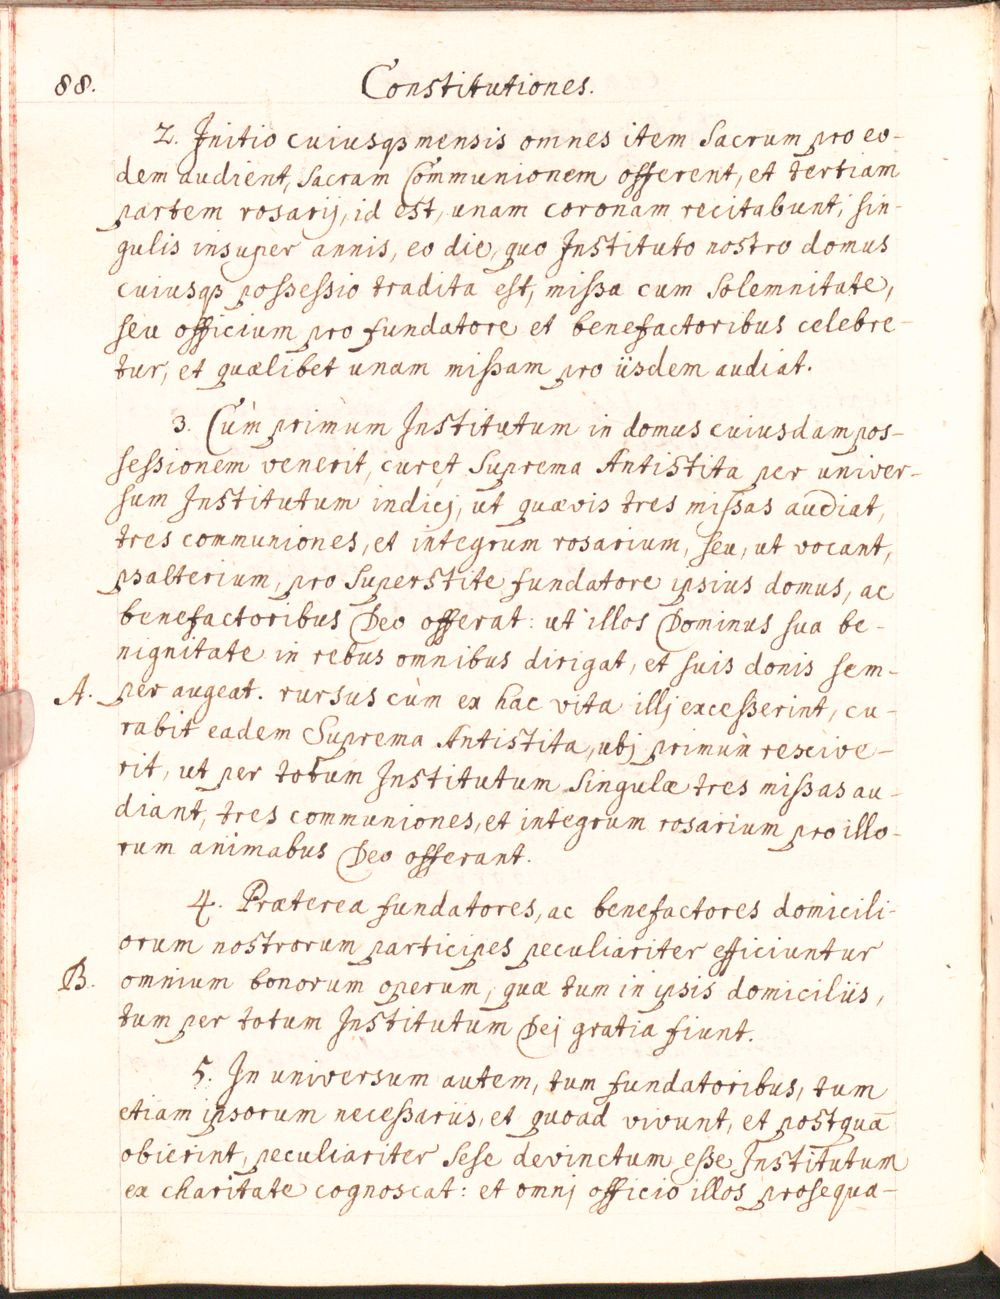 88. Constitutiones.
2. Initio cuiusqꝫ mensis omnes item Sacrum pro eo-
dem audient, Sacram Communionem offerent, et tertiam
partem rosarij, id est, unam coronam recitabunt; sin-
gulis insuper annis, eo die, quo Instituto nostro domus
cuiusqꝫ possessio tradita est, missa cum Solemnitate,
seu officium pro fundatore et benefactoribus celebre-
tur, et quælibet unam missam pro iisdem audiat.
3. Cùm primum Institutum in domus cuiusdam pos-
sessionem venerit, curet Suprema Antistita per univer-
sum Institutum indicj, ut quævis tres missas audiat,
tres communiones, et integrum rosarium, seu, ut vocant,
psalterium, pro Superstite fundatore ipsius domus, ac
benefactoribus Deo offerat: ut illos Dominus sua be-
nignitate in rebus omnibus dirigat, et suis donis sem-
A. per augeat. rursus cùm ex hac vita illj excesserint, cu-
rabit eadem Suprema Antistita, ubj primùm rescive-
rit, ut per totum Institutum Singulæ tres missas au-
diant, tres communiones, et integrum rosarium pro illo-
rum animabus Deo offerant.
4. Præterea fundatores, ac benefactores domicili-
orum nostrorum participes peculiariter efficiuntur
B. omnium bonorum operum, quæ tum in ipsis domiciliis,
tum per totum Institutum Dej gratia fiunt.
5. In universum autem, tum fundatoribus, tum
etiam ipsorum necessariis, et quoad vivunt, et postquā
obierint, peculiariter Sese devinctum esse Institutum
ex charitate cognoscat: et omnj officio illos prosequa-